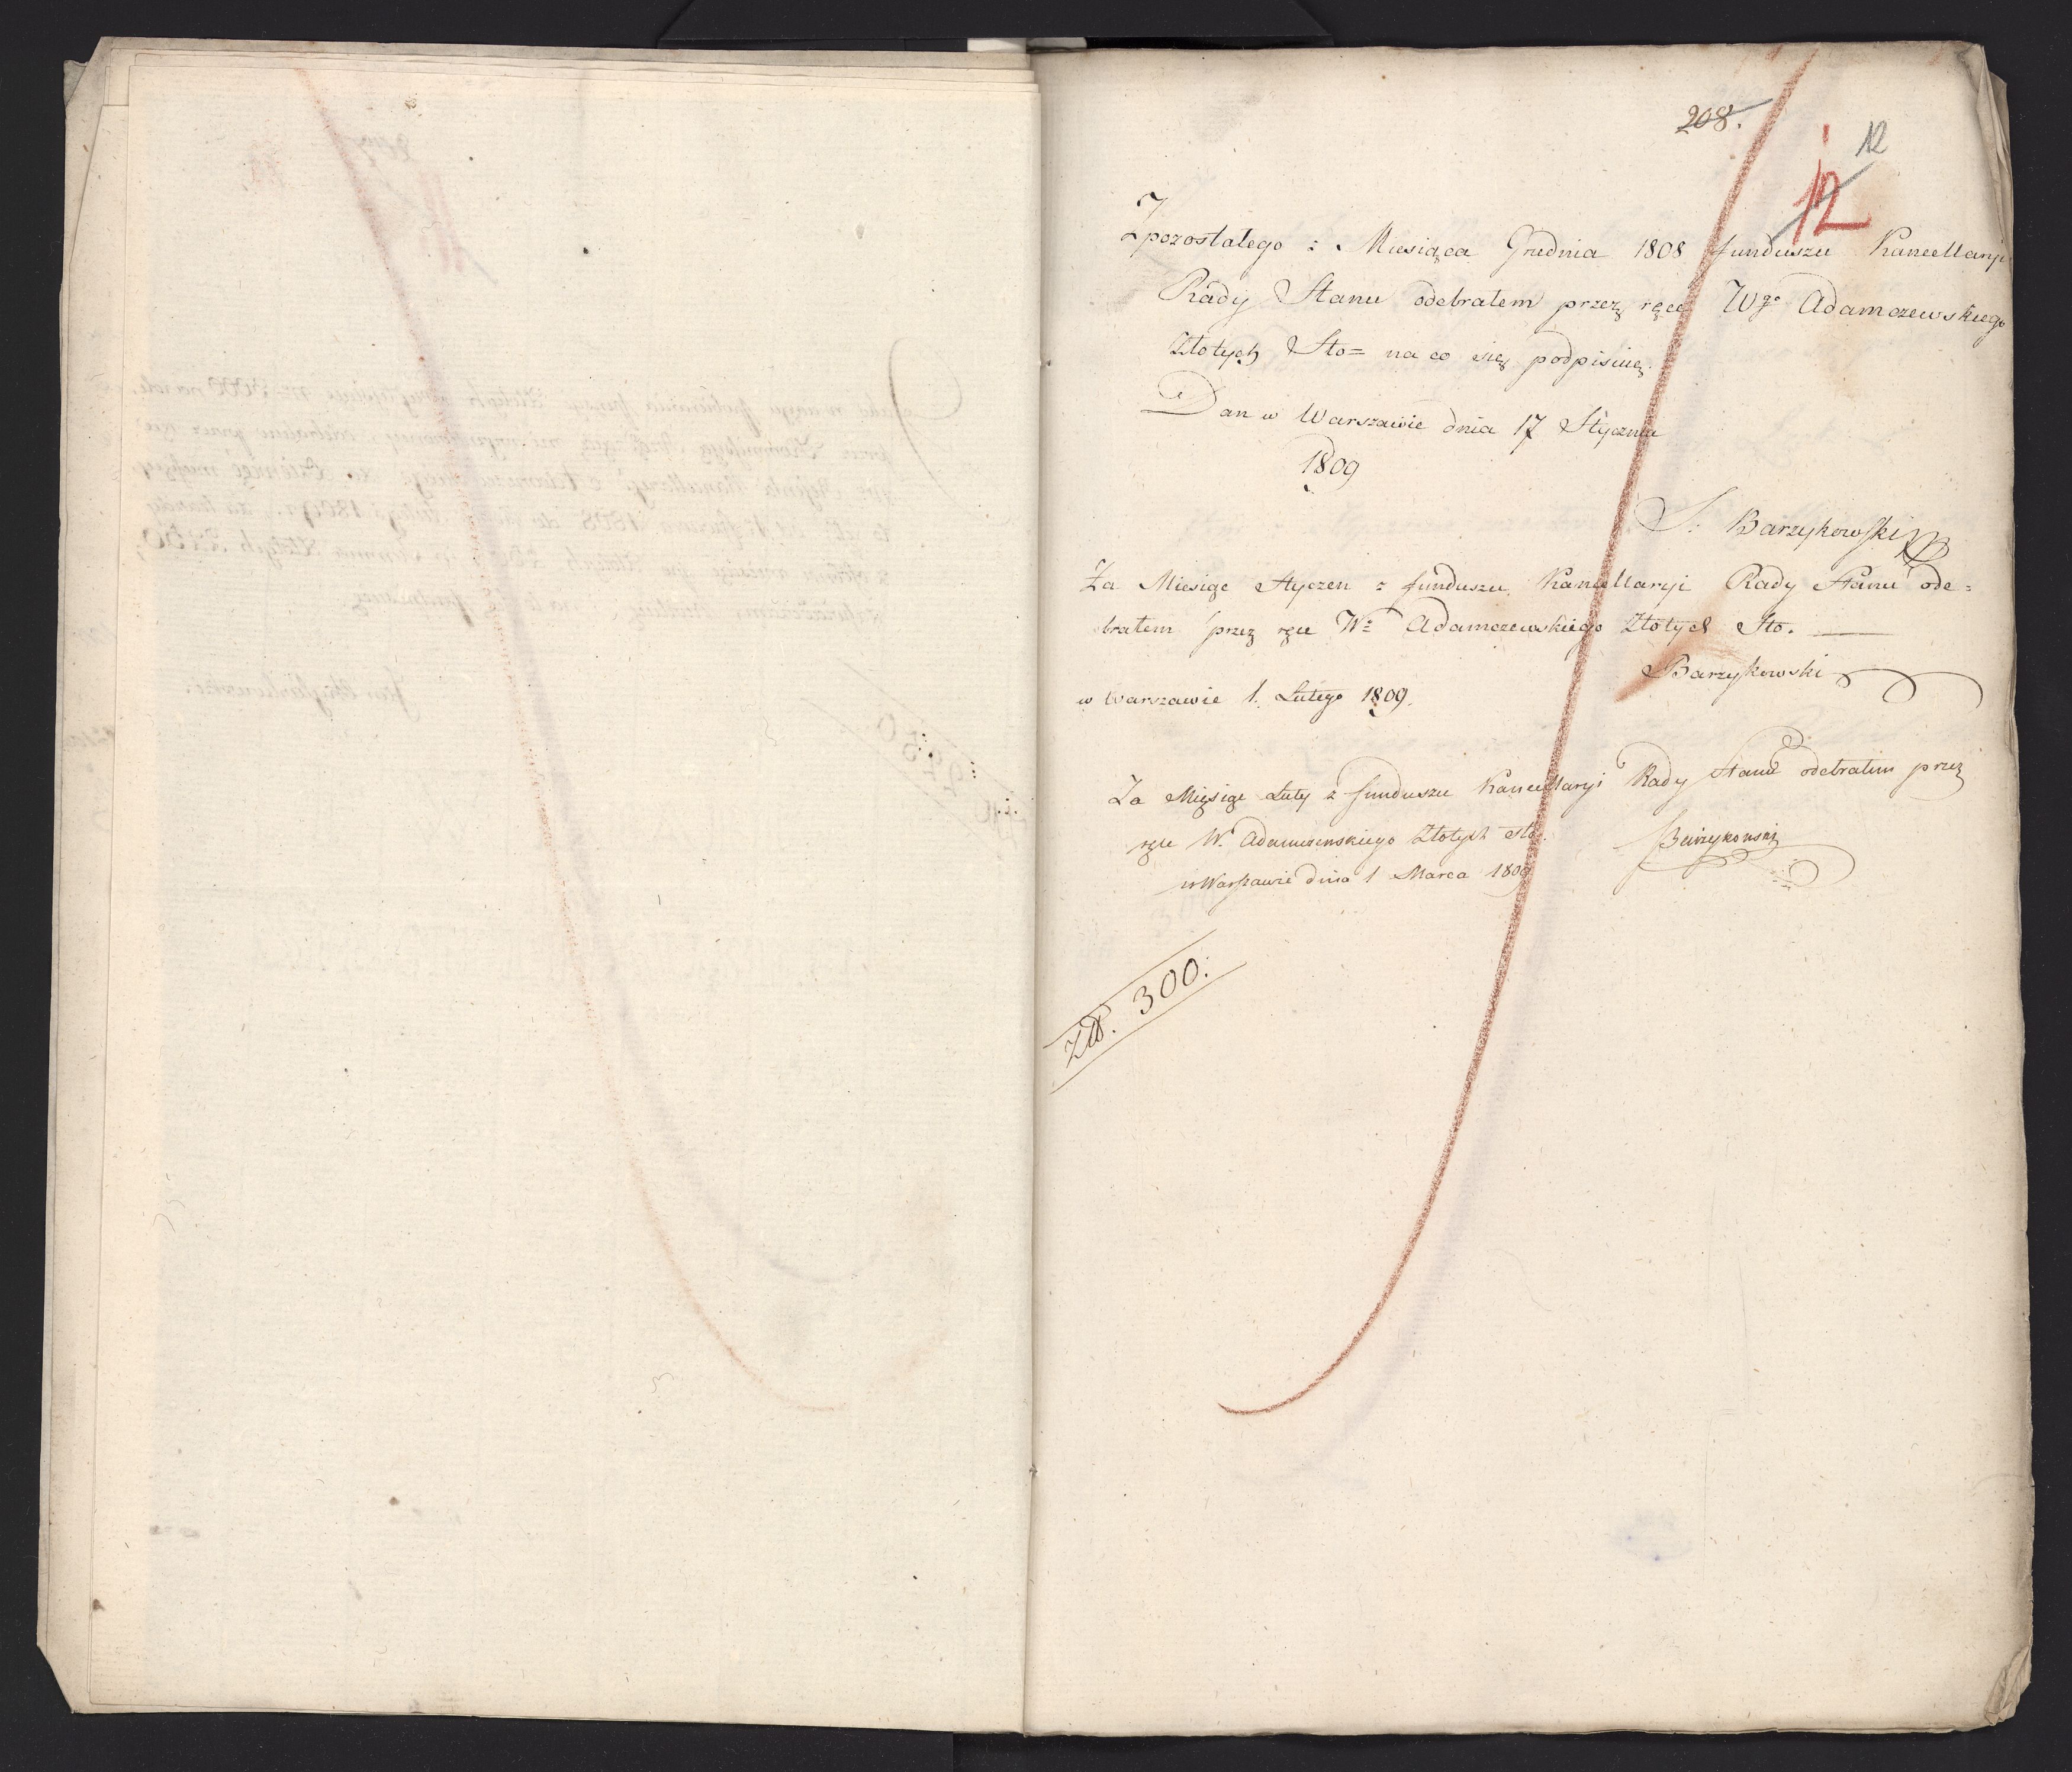 208.
12
12
Z pozostałego z Miesiąca Grudnia 1808 funduszu Kancellaryi
Rady Stanu odebrałem przez ręce Wgo Adamczewskiego
Złotych Sto= na co się podpisuię.
Dan w Warszawie dnia 17 Stycznia
1809
S. Barzykowski
Za Miesiąc Styczen z funduszu Kancellaryi Rady Stanu ode=
brałem przez ręce Wo Adamczewskiego Złotych Sto.
Barzykowski
w Warszawie 1. Lutego 1809.
Za Miesiąc Luty z funduszu Kancellaryi Rady Stanu odebrałem przez
ręce W. Adamczewskiego Złotych sto.
Barzykowski
w Warszawie dnia 1 Marca 1809
Złł. 300.